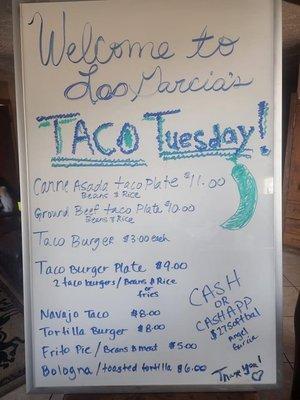 Welcome to
Los Garcia's
TACO Tuesday!
Carne Asada taco Plate $11.00
Beans & Rice
Ground Beef taco Plate $10.00
Beans & Rice
Taco Burger $3.00 each
Taco Burger Plate $9.00
2 taco burgers / Beans & Rice
or
fries
Navajo Taco $8.00
Tortilla Burger $8.00
Frito Pie / Beans & meat $5.00
Bologna / toasted tortilla $6.00
CASH
OR
CASHAPP
$27softball
Angel
Garcia
Thank you!